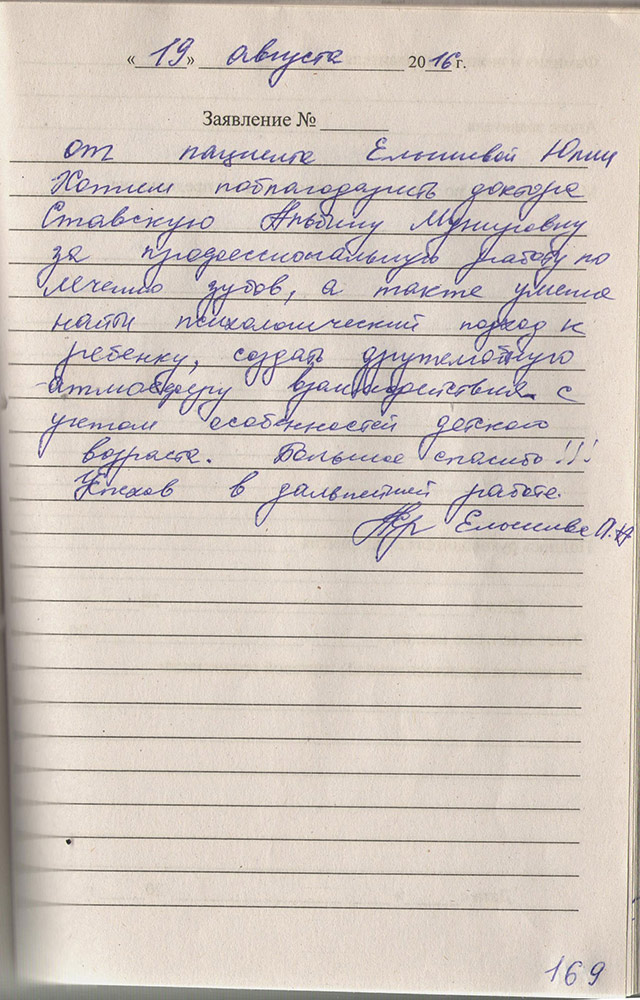 « 19 » августа 2016 г.
Заявление №
от пациента Елошивой Юлии
Хотим поблагодарить доктора
Ставскую Альбину Мунировну
за профессиональную работу по
лечению зубов, а также умение
найти психологический подход к
ребенку, создать дружелюбную
атмосферу взаимодействия с
учетом особенностей детского
возраста. Большое спасибо!!!
Успехов в дальнейшей работе.
169